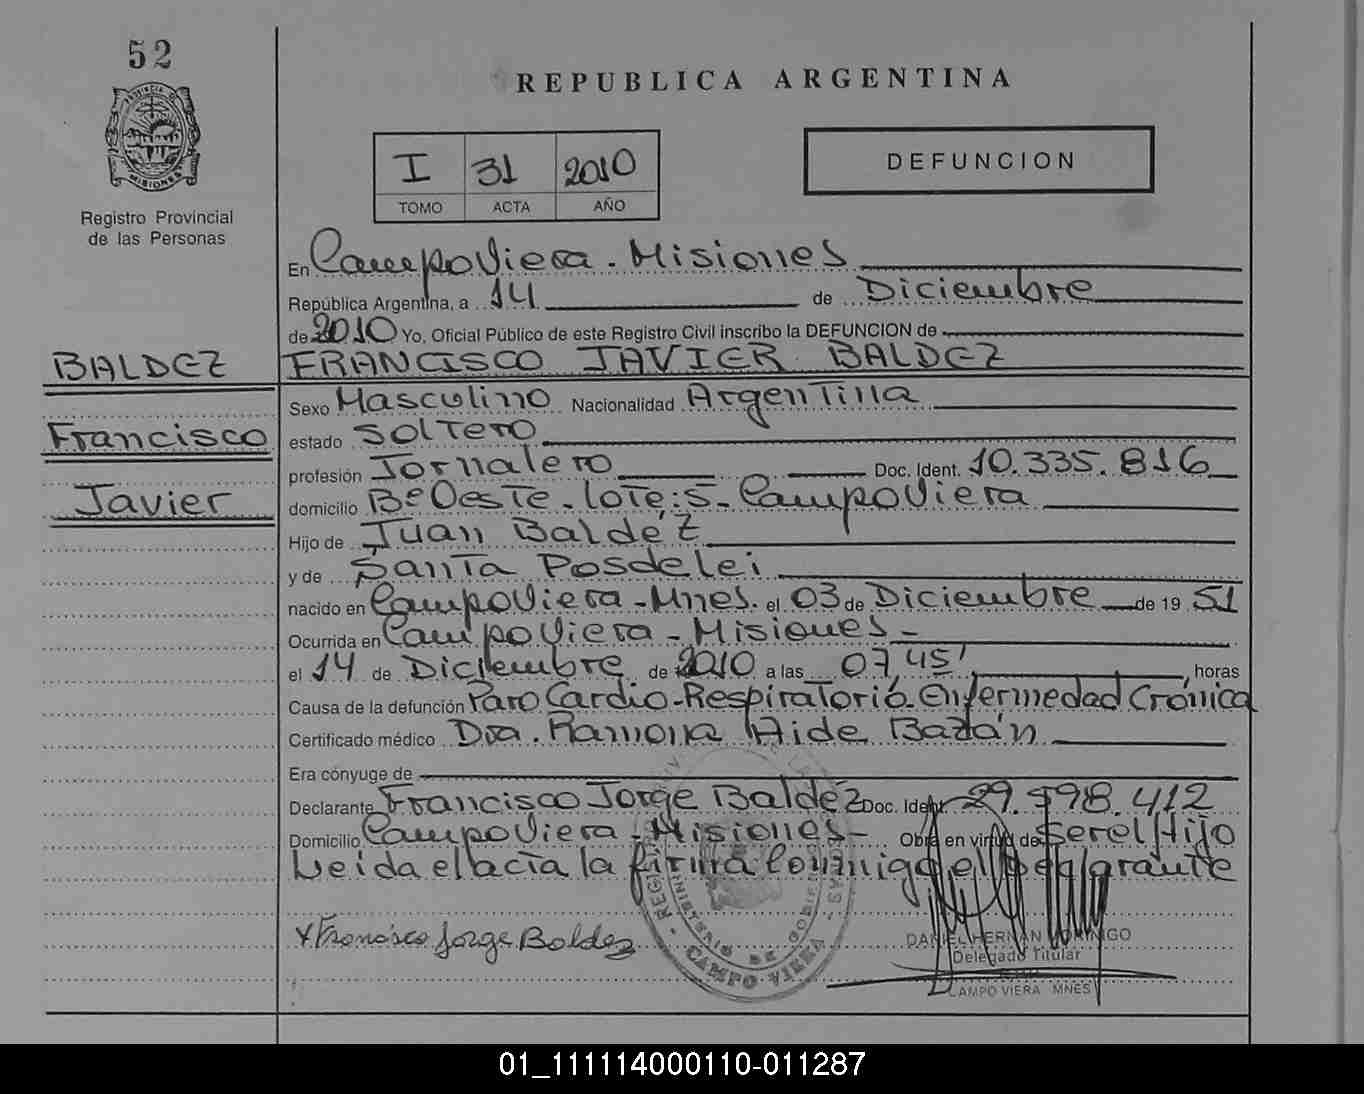 52
PROVINCIA DE
MISIONES
Registro Provincial
de las Personas
REPUBLICA ARGENTINA
I 31 2010
TOMO ACTA AÑO
DEFUNCION
En CampoViera - Misiones
República Argentina, a 14 de Diciembre
de 2010 Yo, Oficial Público de este Registro Civil inscribo la DEFUNCION de
BALDEZ FRANCISCO JAVIER BALDEZ
Sexo Masculino Nacionalidad Argentina
Francisco estado Soltero
profesión Jornalero Doc. Ident. 10.335.816
Javier domicilio Bº Oeste - lote: 5 - CampoViera
Hijo de Juan Baldéz
y de Santa Posdelei
nacido en CampoViera - Mnes. el 03 de Diciembre de 19 51
Ocurrida en CampoViera - Misiones -
el 14 de Diciembre de 2010 a las 07,45' horas
Causa de la defunción Paro Cardio-Respiratorio. Enfermedad Crónica
Certificado médico Dra. Ramona Aide Bazán
Era cónyuge de
Declarante Francisco Jorge Baldéz Doc. Ident. 29.598.412
Domicilio CampoViera - Misiones - Obra en virtud de ser el Hijo
Leida el acta la firma Conmigo el Declarante
x Francisco Jorge Baldez
MINISTERIO DE GOBIERNO
- CAMPO VIERA -
DANIEL HERNAN MORINIGO
Delegado Titular
CAMPO VIERA MNES
01_111114000110-011287